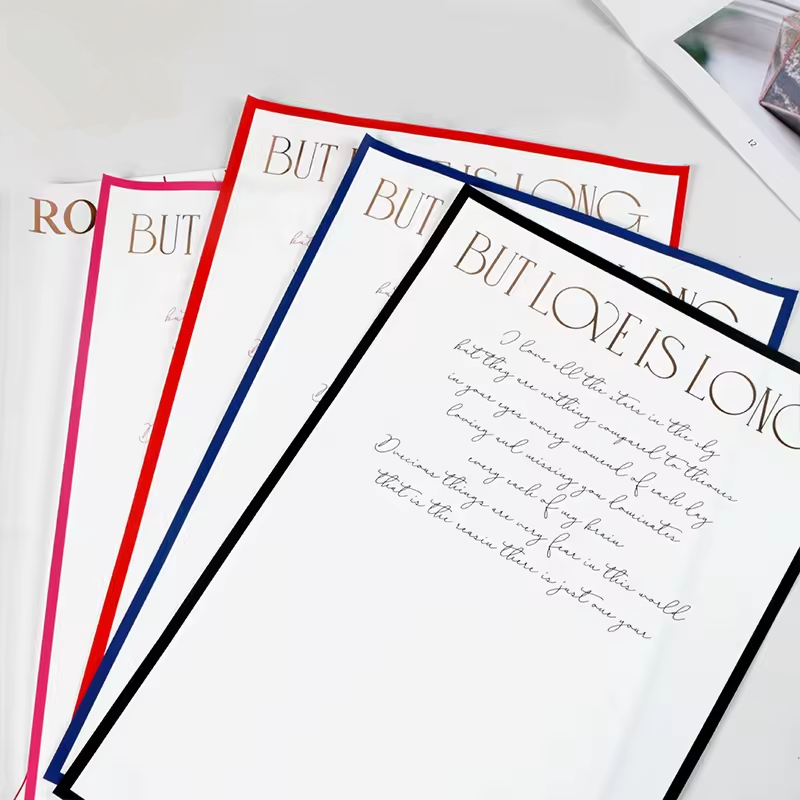 12
RO
BUT
BUT
BUT LOVE IS LONG
BUT LONG
BUT LOVE IS LONG
I love all the stars in the sky
but they are nothing compared to thoues
in your eyes wvery momend of each day
loving and missing you lominates
every each of my brain
Drecious things are very fear in this world
that is the reasiu there is just oue your